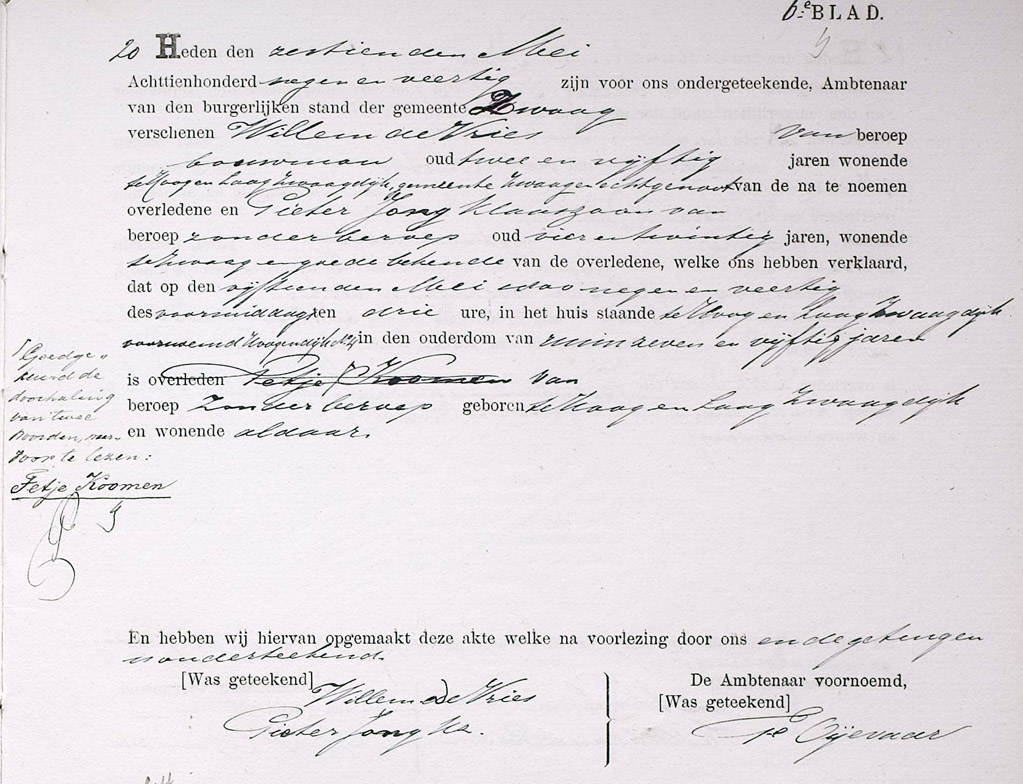 6e BLAD.
20 Heden den zestienden Mei
Achttienhonderd negen en veertig zijn voor ons ondergeteekende, Ambtenaar
van den burgerlijken stand der gemeente Zwaag
verschenen Willem de Vries van beroep
bouwman oud twee en vijftig jaren wonende
te Hoog en Laag Zwaagdijk, gemeente Zwaag en echtgenoot van de na te noemen
overledene en Pieter Jong Klaaszoon van
beroep zonder beroep oud vier en twintig jaren, wonende
te Zwaag en goede bekende van de overledene, welke ons hebben verklaard,
dat op den vijftienden Mei negen en veertig
des voormiddags ten drie ure, in het huis staande te Hoog en Laag Zwaagdijk
voornoemd in den ouderdom van ruim zeven en vijftig jaren
is overleden Petje Koomen van
beroep Zonder beroep geboren te Hoog en Laag Zwaagdijk
en wonende aldaar.
Goedge-
keurd de
doorhaling
van twee
woorden,
voor te lezen:
Fetje Koomen
En hebben wij hiervan opgemaakt deze akte welke na voorlezing door ons en de getuigen
is onderteekend.
[Was geteekend]
Willem de Vries
Pieter Jong Kz.
De Ambtenaar voornoemd,
[Was geteekend]
Oijevaar